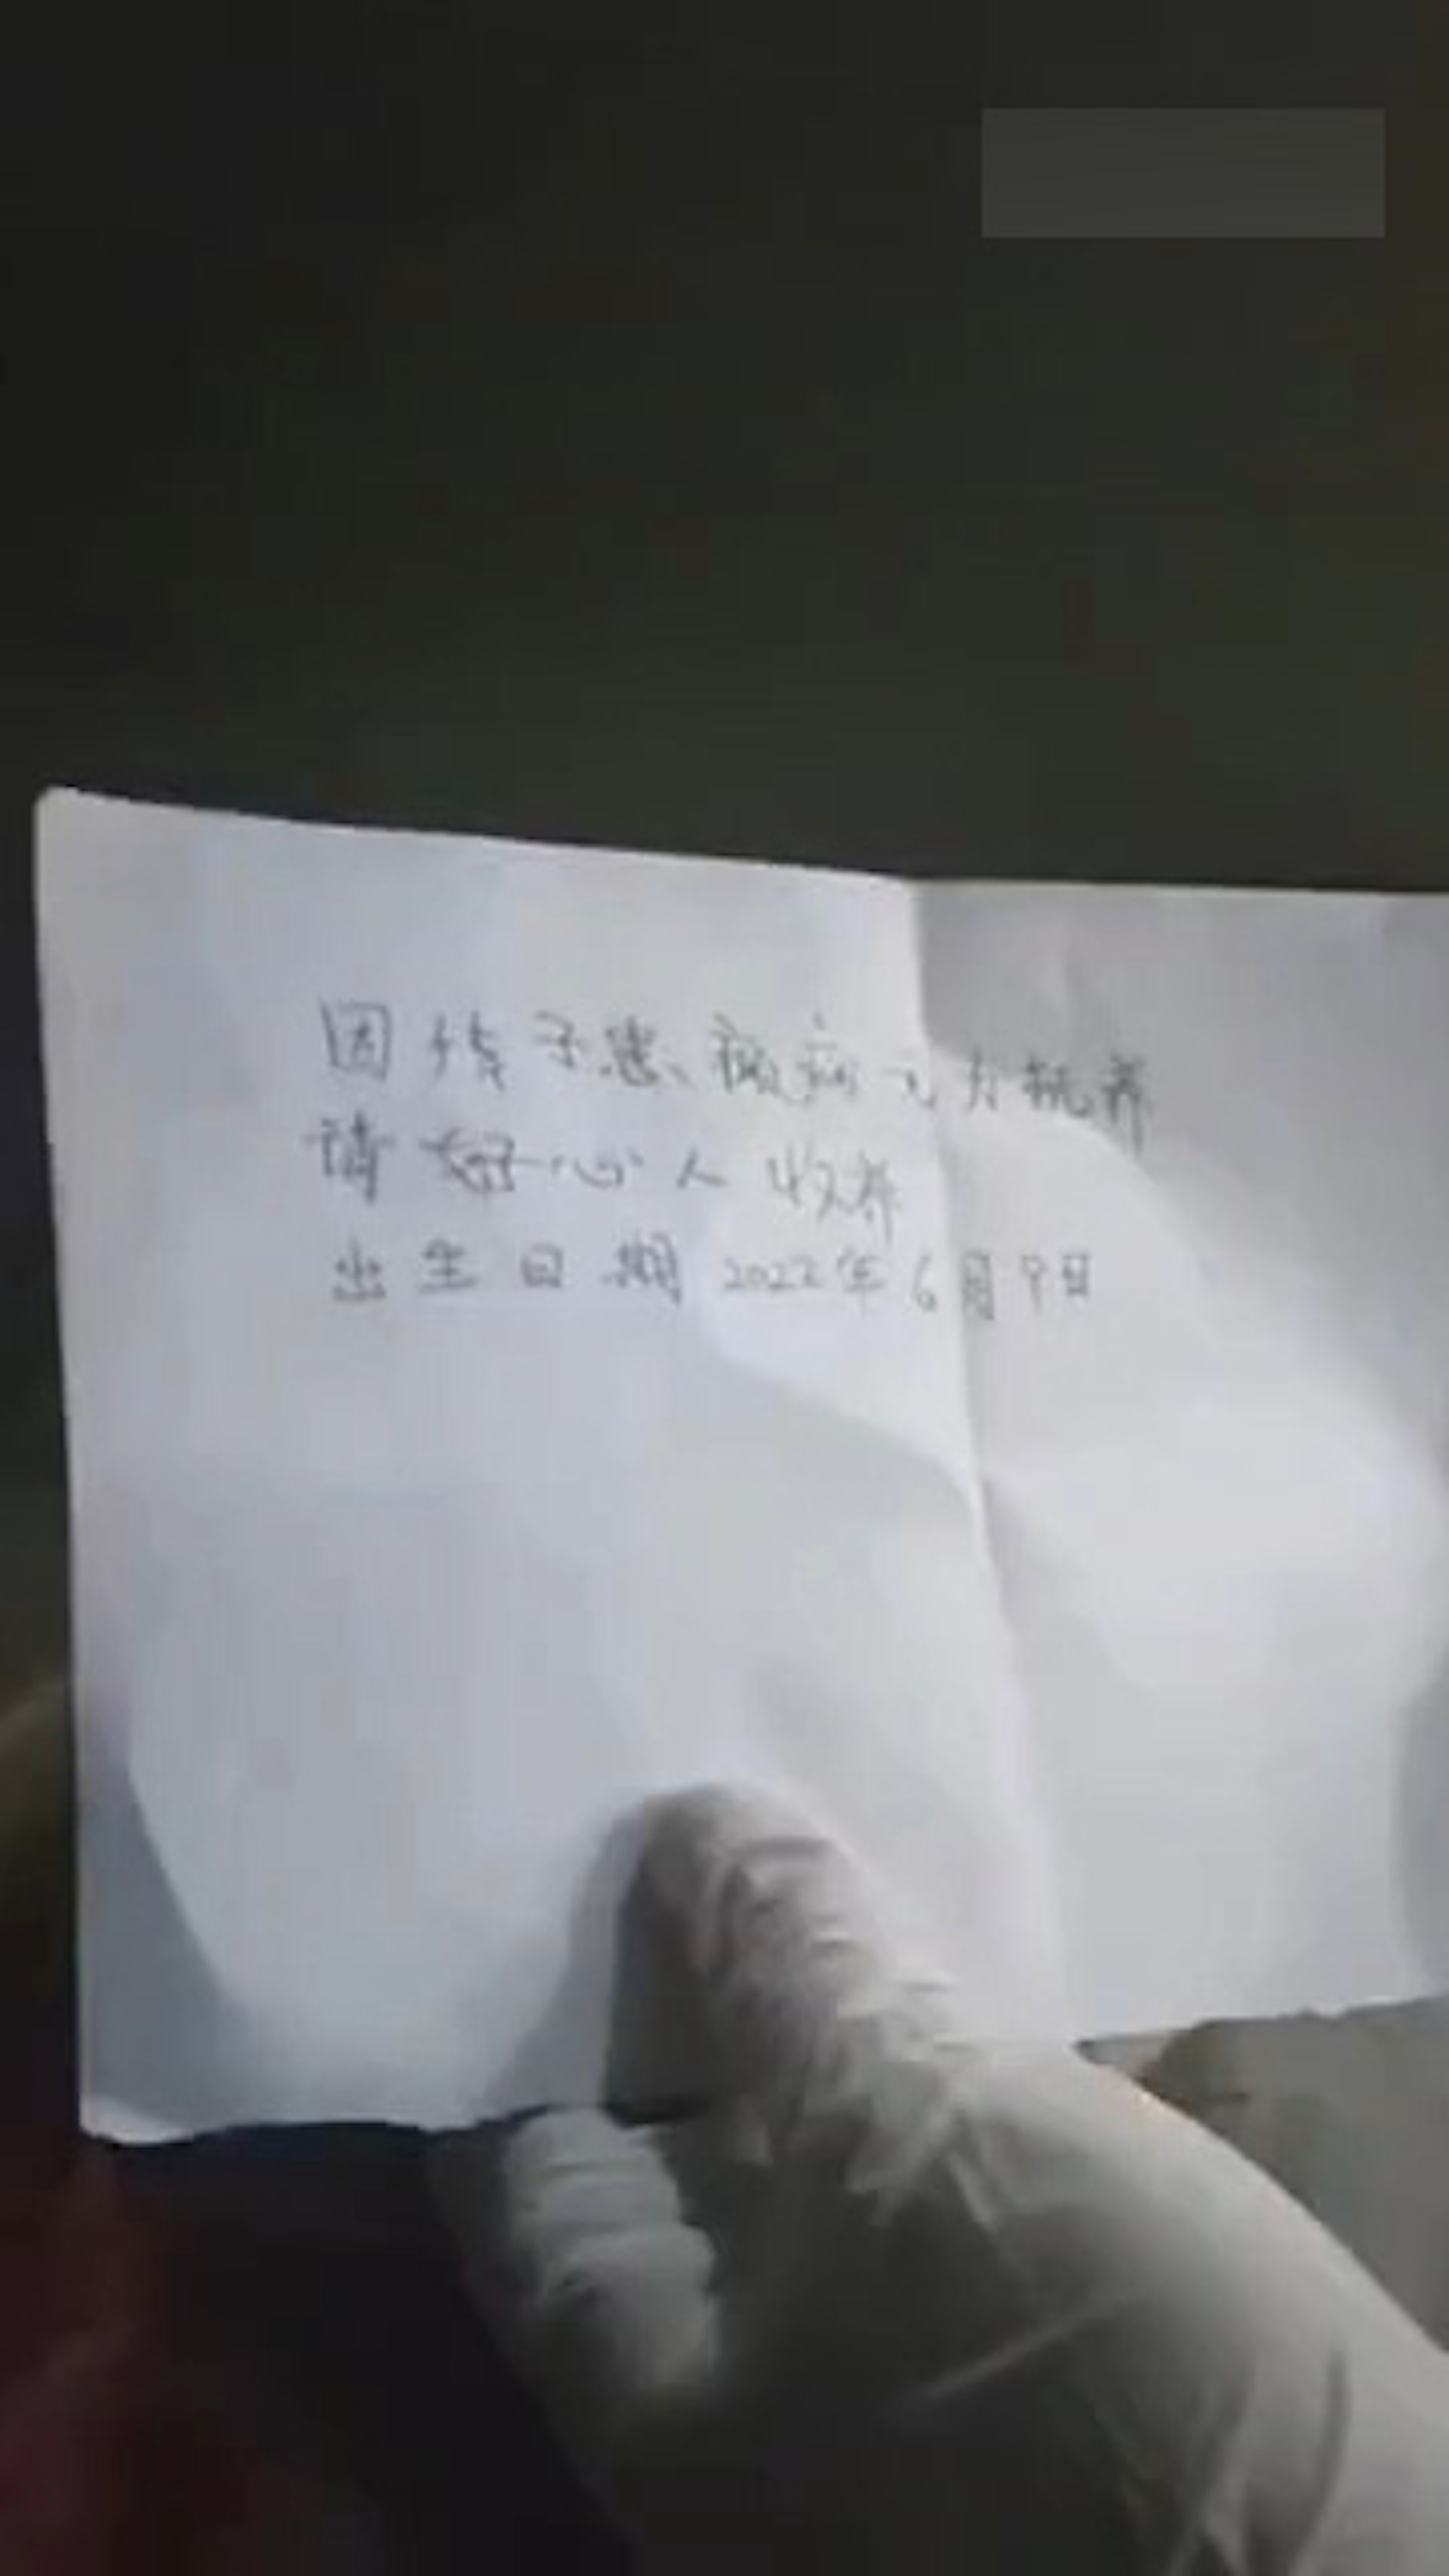 因孩子患癫病无力抚养
请好心人收养
出生日期2022年6月9日